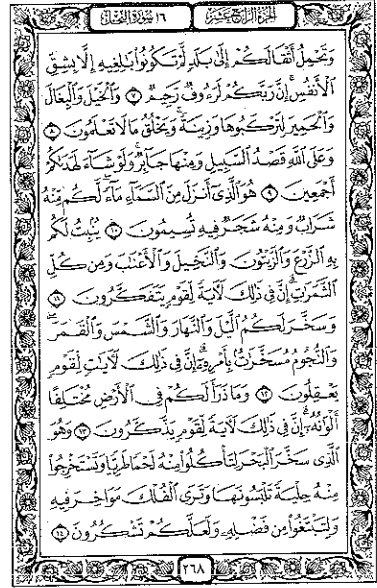 الجزء الرابع عشر ١٦ سورة النحل
وَتَحْمِلُ أَثْقَالَكُمْ إِلَىٰ بَلَدٍ لَّمْ تَكُونُوا۟ بَـٰلِغِيهِ إِلَّا بِشِقِّ
ٱلْأَنفُسِ ۚ إِنَّ رَبَّكُمْ لَرَءُوفٌ رَّحِيمٌ ٧ وَٱلْخَيْلَ وَٱلْبِغَالَ
وَٱلْحَمِيرَ لِتَرْكَبُوهَا وَزِينَةً ۚ وَيَخْلُقُ مَا لَا تَعْلَمُونَ ٨
وَعَلَى ٱللَّهِ قَصْدُ ٱلسَّبِيلِ وَمِنْهَا جَآئِرٌ ۚ وَلَوْ شَآءَ لَهَدَىٰكُمْ
أَجْمَعِينَ ٩ هُوَ ٱلَّذِىٓ أَنزَلَ مِنَ ٱلسَّمَآءِ مَآءً ۖ لَّكُم مِّنْهُ
شَرَابٌ وَمِنْهُ شَجَرٌ فِيهِ تُسِيمُونَ ١٠ يُنۢبِتُ لَكُم
بِهِ ٱلزَّرْعَ وَٱلزَّيْتُونَ وَٱلنَّخِيلَ وَٱلْأَعْنَـٰبَ وَمِن كُلِّ
ٱلثَّمَرَٰتِ ۗ إِنَّ فِى ذَٰلِكَ لَـَٔايَةً لِّقَوْمٍ يَتَفَكَّرُونَ ١١
وَسَخَّرَ لَكُمُ ٱلَّيْلَ وَٱلنَّهَارَ وَٱلشَّمْسَ وَٱلْقَمَرَ ۖ
وَٱلنُّجُومُ مُسَخَّرَٰتٌۢ بِأَمْرِهِۦٓ ۗ إِنَّ فِى ذَٰلِكَ لَـَٔايَـٰتٍ لِّقَوْمٍ
يَعْقِلُونَ ١٢ وَمَا ذَرَأَ لَكُمْ فِى ٱلْأَرْضِ مُخْتَلِفًا
أَلْوَٰنُهُۥٓ ۗ إِنَّ فِى ذَٰلِكَ لَـَٔايَةً لِّقَوْمٍ يَذَّكَّرُونَ ١٣ وَهُوَ
ٱلَّذِى سَخَّرَ ٱلْبَحْرَ لِتَأْكُلُوا۟ مِنْهُ لَحْمًا طَرِيًّا وَتَسْتَخْرِجُوا۟
مِنْهُ حِلْيَةً تَلْبَسُونَهَا وَتَرَى ٱلْفُلْكَ مَوَاخِرَ فِيهِ
وَلِتَبْتَغُوا۟ مِن فَضْلِهِۦ وَلَعَلَّكُمْ تَشْكُرُونَ ١٤
٢٦٨